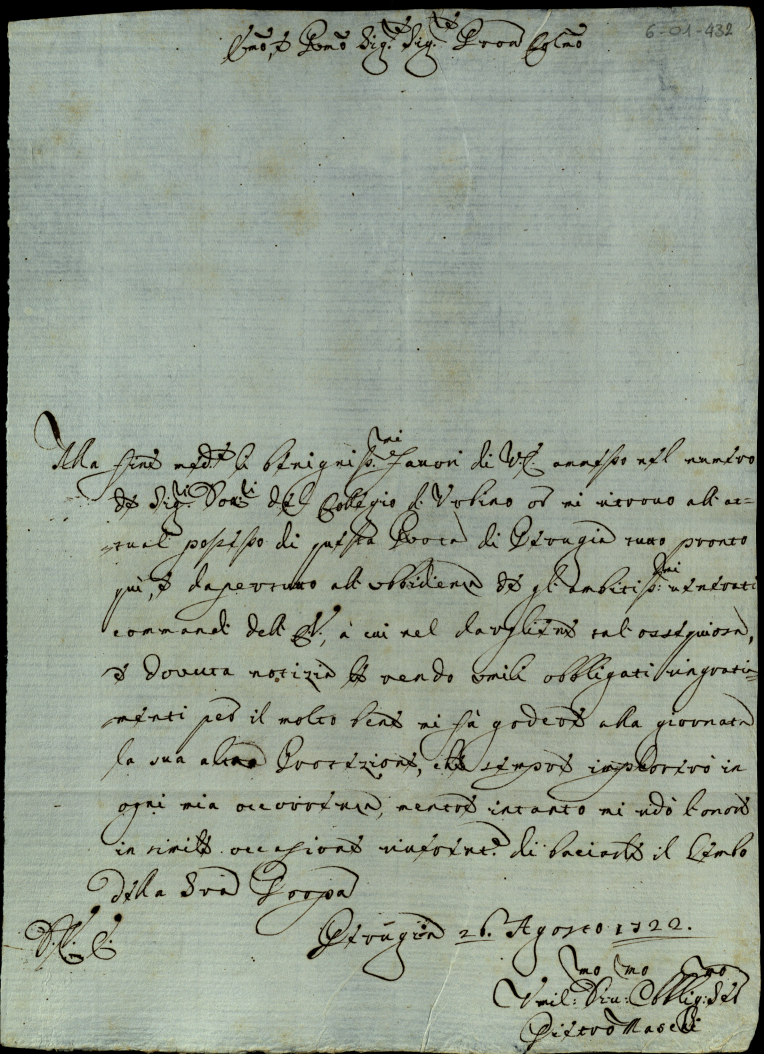 6-01-432
Emo, e Rmo Sig.re Sig.re Pron Colmo
Alla fine med.e li benigniss.mi favori di V.E. annesso nel numero
de Sig.ri Dott.ri del Collegio di Urbino or mi ritrovo all at-
tual possesso di questa Rota di Perugia tutto pronto
quì, e dapertutto all ubbidienza de gl ambitiss.mi venerati
commandi dell E.V., à cui nel dargliene tal ossequiosa,
e dovuta notizia le rendo umili obbligati ringratia-
menti per il molto bene mi fà godere alla giornata
la sua alta Protezione, che sempre implorerò in
ogni mia occorrenza, mentre intanto mi dò l'onore
in simile occasione di baciarle il Lembo
della Sua Porpora
Perugia 26. Agosto 1722.
D. V. E.
Umil:mo Dev:mo Obblig:mo Ser
Pietro